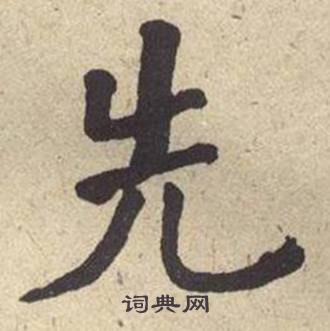 先
词典网